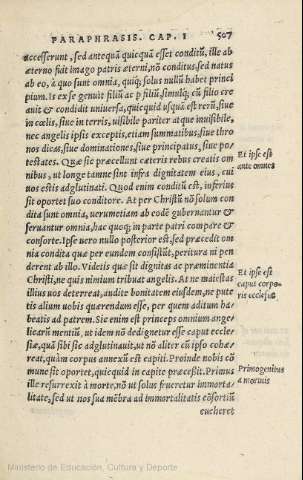 PARAPHRASIS. CAP. I 507
accesserunt, sed antequã quicquã esset conditũ, ille ab
æterno fuit imago patris æterni, nõ conditus, sed natus
ab eo, à quo sunt omnia, quiq; solus nullũ habet princi
pium. Is ex se genuit filiũ ac p filiũ, simulq; cũ filio cre
auit & condidit uniuersa, quicquid usquã est rerũ, siue
in cœlis, siue in terris, uisibile pariter atque inuisibile,
nec angelis ipsis exceptis, etiam summatibus, siue thro
nos dicas, siue dominationes, siue principatus, siue po-
testates. Quæ sic præcellunt cæteris rebus creatis om
nibus, ut longe tamne sint infra dignitatem eius, cui
Et ipse est
ante omnes
uos estis adglutinati. Quod enim conditũ est, inferius
sit oportet suo conditore. At per Christũ nõ solum con
dita sunt omnia, uerumetiam ab eodẽ gubernantur &
seruantur omnia, hac quoq; in parte patri compare &
consorte. Ipse uero nullo posterior est, sed præcedit om
nia condita quæ per eundem consistũt, peritura ni pen
derent ab illo. Videtis quæ sit dignitas ac præeminentia
Et ipse est
caput corpo-
ris ecclesiæ
Christi, ne quis nimium tribuat angelis. At ne maiestas
illius uos deterreat, audite bonitatem eiusdem, ne pute
tis alium uobis quærendum esse, per quem aditum ha-
beatis ad patrem. Sic enim est princeps omnium ange-
licarũ mentiũ, ut idem nõ dedignetur esse caput eccle-
siæ, quã sibi sic adglutinauit, ut nõ aliter cũ ipso cohæ-
reat, quàm corpus annexũ est capiti. Proinde nobis cõ
Primogenitus
a mortuis
mune sit oportet, quicquid in capite præcessit. Primus
ille resurrexit à morte, nõ ut solus frueretur immorta-
litate, sed ut nos sua mẽbra ad immortalitatis cõsortiũ
eueheret
Ministerio de Educación, Cultura y Deporte